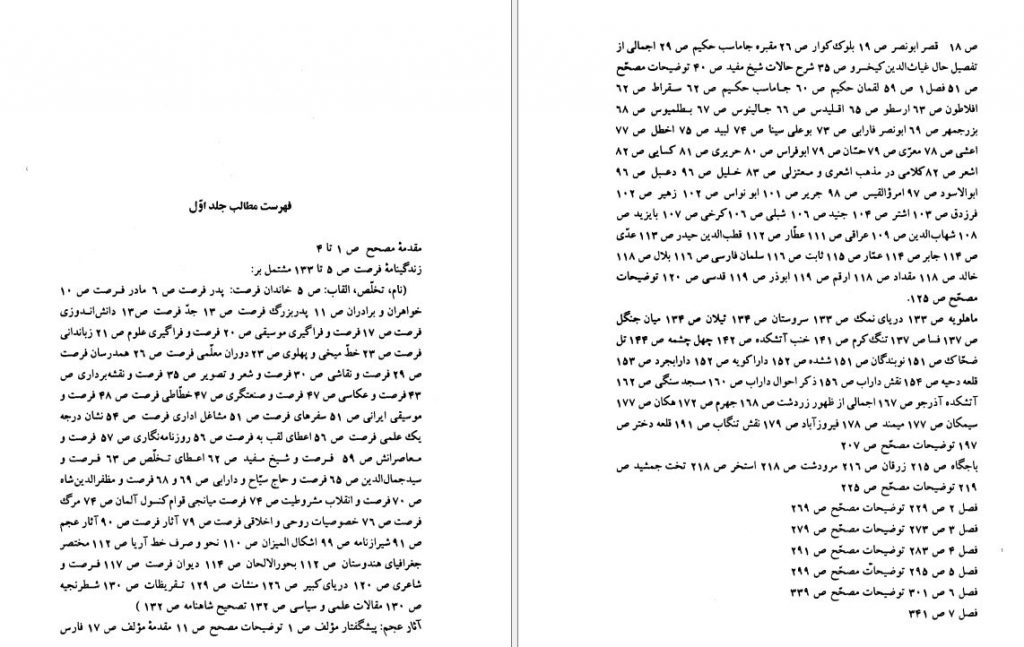 فهرست مطالب جلد اوّل
مقدمهٔ مصحح ص ۱ تا ۴
زندگینامهٔ فرصت ص ۵ تا ۱۳۳ مشتمل بر:
(نام، تخلّص، القاب: ص ۵ خاندان فرصت: پدر فرصت ص ۶ مادر فـرصت ص ۱۰
خواهران و برادران ص ۱۱ پدربزرگ فرصت ص ۱۳ جدّ فرصت ص۱۳ دانش‌انـدوزی
فرصت ص ۱۷ فرصت و فراگیری موسیقی ص ۲۰ فرصت و فراگیری علوم ص ۲۱ زباندانی
فرصت ص ۲۳ خطّ میخی و پهلوی ص ۲۳ دوران معلّمی فرصت ص ۲۶ همدرسان فرصت
ص ۲۹ فرصت و نقاشی ص ۳۰ فرصت و شعر و تصویر ص ۳۵ فرصت و نقشه‌برداری ص
۴۳ فرصت و عکاسی ص ۴۷ فرصت و صنعتگری ص ۴۷ خطّاطی فرصت ص ۴۸ فرصت و
موسیقی ایرانی ص ۵۱ سفرهای فرصت ص ۵۱ مشاغل اداری فرصت ص ۵۴ نشان درجه
یک علمی فرصت ص ۵۶ اعطای لقب به فرصت ص ۵۶ روزنامه‌نگاری ص ۵۷ فرصت و
معـاصرانش ص ۵۹ فـرصت و شیخ مـفید ص ۶۲ اعـطای تـخلّص ص ۶۳ فـرصت و
سیدجمال‌الدین ص ۶۵ فرصت و حاج سیّاح و دارایی ص ۶۹ و ۶۸ فرصت و مظفرالدین‌شاه
ص ۷۰ فرصت و انقلاب مشروطیت ص ۷۴ فرصت میانجی قوام‌کنسول آلمان ص ۷۴ مرگ
فرصت ص ۷۶ خصوصیات روحی و اخلاقی فرصت ص ۷۹ آثار فرصت ص ۹۰ آثار عجم
ص ۹۱ شیرازنامه ص ۹۹ اشکال المیزان ص ۱۱۰ نحو و صرف خط آریا ص ۱۱۲ مختصر
جغرافیای هندوستان ص ۱۱۲ بحورالالحان ص ۱۱۴ دیـوان فرصت ص ۱۱۷ فـرصت و
شاعری ص ۱۲۰ دریای کبیر ص ۱۲۶ منشات ص ۱۲۹ تـقریظات ص ۱۳۰ شـطرنجیه
ص ۱۳۰ مقالات علمی و سیاسی ص ۱۳۲ تصحیح شاهنامه ص ۱۳۲ )
آثار عجم: پیشگفتار مؤلف ص ۱ توضیحات مصحح ص ۱۱ مقدمهٔ مؤلف ص ۱۷ فارس
ص ۱۸ قصر ابونصر ص ۱۹ بلوک کوار ص ۲۶ مقبره جاماسب حکیم ص ۲۹ اجمالی از
تفصیل حال غیاث‌الدین کیخسرو ص ۳۵ شرح حالات شیخ مفید ص ۴۰ توضیحات مصحّح
ص ۵۱ فصل۱ ص ۵۹ لقمان حکیم ص ۶۰ جـاماسب حکـیم ص ۶۲ سـقراط ص ۶۲
افلاطون ص ۶۳ ارسطو ص ۶۵ اقـلیدس ص ۶۶ جـالینوس ص ۶۷ بـطلمیوس ص ۶۸
بزرجمهر ص ۶۹ ابونصر فارابی ص ۷۳ بوعلی سینا ص ۷۴ لبید ص ۷۵ اخطل ص ۷۷
اعشی ص ۷۸ معرّی ص ۷۹ حسّان ص ۷۹ ابوفراس ص ۸۰ حریری ص ۸۱ کسایی ص ۸۲
اشعر ص ۸۲ کلامی در مذهب اشعری و معتزلی ص ۸۳ خـلیل ص ۹۶ دعـبل ص ۹۶
ابوالاسود ص ۹۷ امرؤالقیس ص ۹۸ جریر ص ۱۰۱ ابو نواس ص ۱۰۲ زهیر ص ۱۰۲
فرزدق ص ۱۰۳ اشتر ص ۱۰۴ جنید ص ۱۰۶ شبلی ص ۱۰۶ کرخی ص ۱۰۷ بایزید ص
۱۰۸ شهاب‌الدین ص ۱۰۹ عراقی ص ۱۱۱ عطّار ص ۱۱۲ قطب‌الدین حیدر ص ۱۱۳ عدّی
ص ۱۱۴ جابر ص ۱۱۴ عمّار ص ۱۱۵ ثابت ص ۱۱۶ سلمان فارسی ص ۱۱۶ بلال ص ۱۱۸
خالد ص ۱۱۸ مقداد ص ۱۱۸ ارقم ص ۱۱۹ ابوذر ص ۱۱۹ قدسی ص ۱۲۰ تـوضیحات
مصحّح ص ۱۲۵.
ماهلویه ص ۱۳۳ دریای نمک ص ۱۳۳ سروستان ص ۱۳۴ ثیلان ص ۱۳۴ میان جنگل
ص ۱۳۷ فسا ص ۱۳۷ تنگ کرم ص ۱۴۱ خنب آتشکده ص ۱۴۲ چهل چشمه ص ۱۴۴ تل
ضحّاک ص ۱۵۱ نوبندگان ص ۱۵۱ ششده ص ۱۵۲ داراکویه ص ۱۵۲ دارابجرد ص ۱۵۳
قلعه دحیه ص ۱۵۴ نقش داراب ص ۱۵۶ ذکر احوال داراب ص ۱۶۰ مسجد سنگی ص ۱۶۲
آتشکده آذرجو ص ۱۶۷ اجمالی از ظهور زردشت ص ۱۶۸ جهرم ص ۱۷۲ هکان ص ۱۷۷
سیمکان ص ۱۷۷ میمند ص ۱۷۸ فیروزآباد ص ۱۷۹ نقش تنگاب ص ۱۹۱ قلعه دختر ص
۱۹۷ توضیحات مصحّح ص ۲۰۷
باجگاه ص ۲۱۵ زرقان ص ۲۱۶ مرودشت ص ۲۱۸ استخر ص ۲۱۸ تخت جمشید ص
۲۱۹ توضیحات مصحّح ص ۲۲۵
فصل ۲ ص ۲۲۹ توضیحات مصحّح ص ۲۶۹
فصل ۳ ص ۲۷۳ توضیحات مصحّح ص ۲۷۹
فصل ۴ ص ۲۸۳ توضیحات مصحّح ص ۲۹۱
فصل ۵ ص ۲۹۵ توضیحات مصحّح ص ۲۹۹
فصل ۶ ص ۳۰۱ توضیحات مصحّح ص ۳۳۹
فصل ۷ ص ۳۴۱